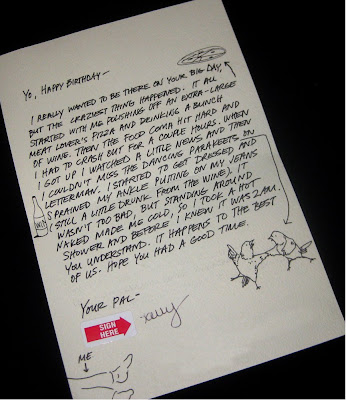 YO, HAPPY BIRTHDAY—
I REALLY WANTED TO BE THERE ON YOUR BIG DAY,
BUT THE CRAZIEST THING HAPPENED. IT ALL
STARTED WITH ME POLISHING OFF AN EXTRA-LARGE
MEAT LOVER'S PIZZA AND DRINKING A BUNCH
OF WINE. THEN THE FOOD COMA HIT HARD AND
I HAD TO CRASH OUT FOR A COUPLE HOURS. WHEN
I GOT UP I WATCHED A LITTLE NEWS AND THEN
I COULDN'T MISS THE DANCING PARAKEETS ON
LETTERMAN. I STARTED TO GET DRESSED AND
SPRAINED MY ANKLE PUTTING ON MY JEANS
(STILL A LITTLE DRUNK FROM THE WINE). IT
WASN'T TOO BAD, BUT STANDING AROUND
NAKED MADE ME COLD, SO I TOOK A HOT
SHOWER AND BEFORE I KNEW IT WAS 2AM.
YOU UNDERSTAND. IT HAPPENS TO THE BEST
OF US. HOPE YOU HAD A GOOD TIME.
YOUR PAL—
SIGN
HERE
ME